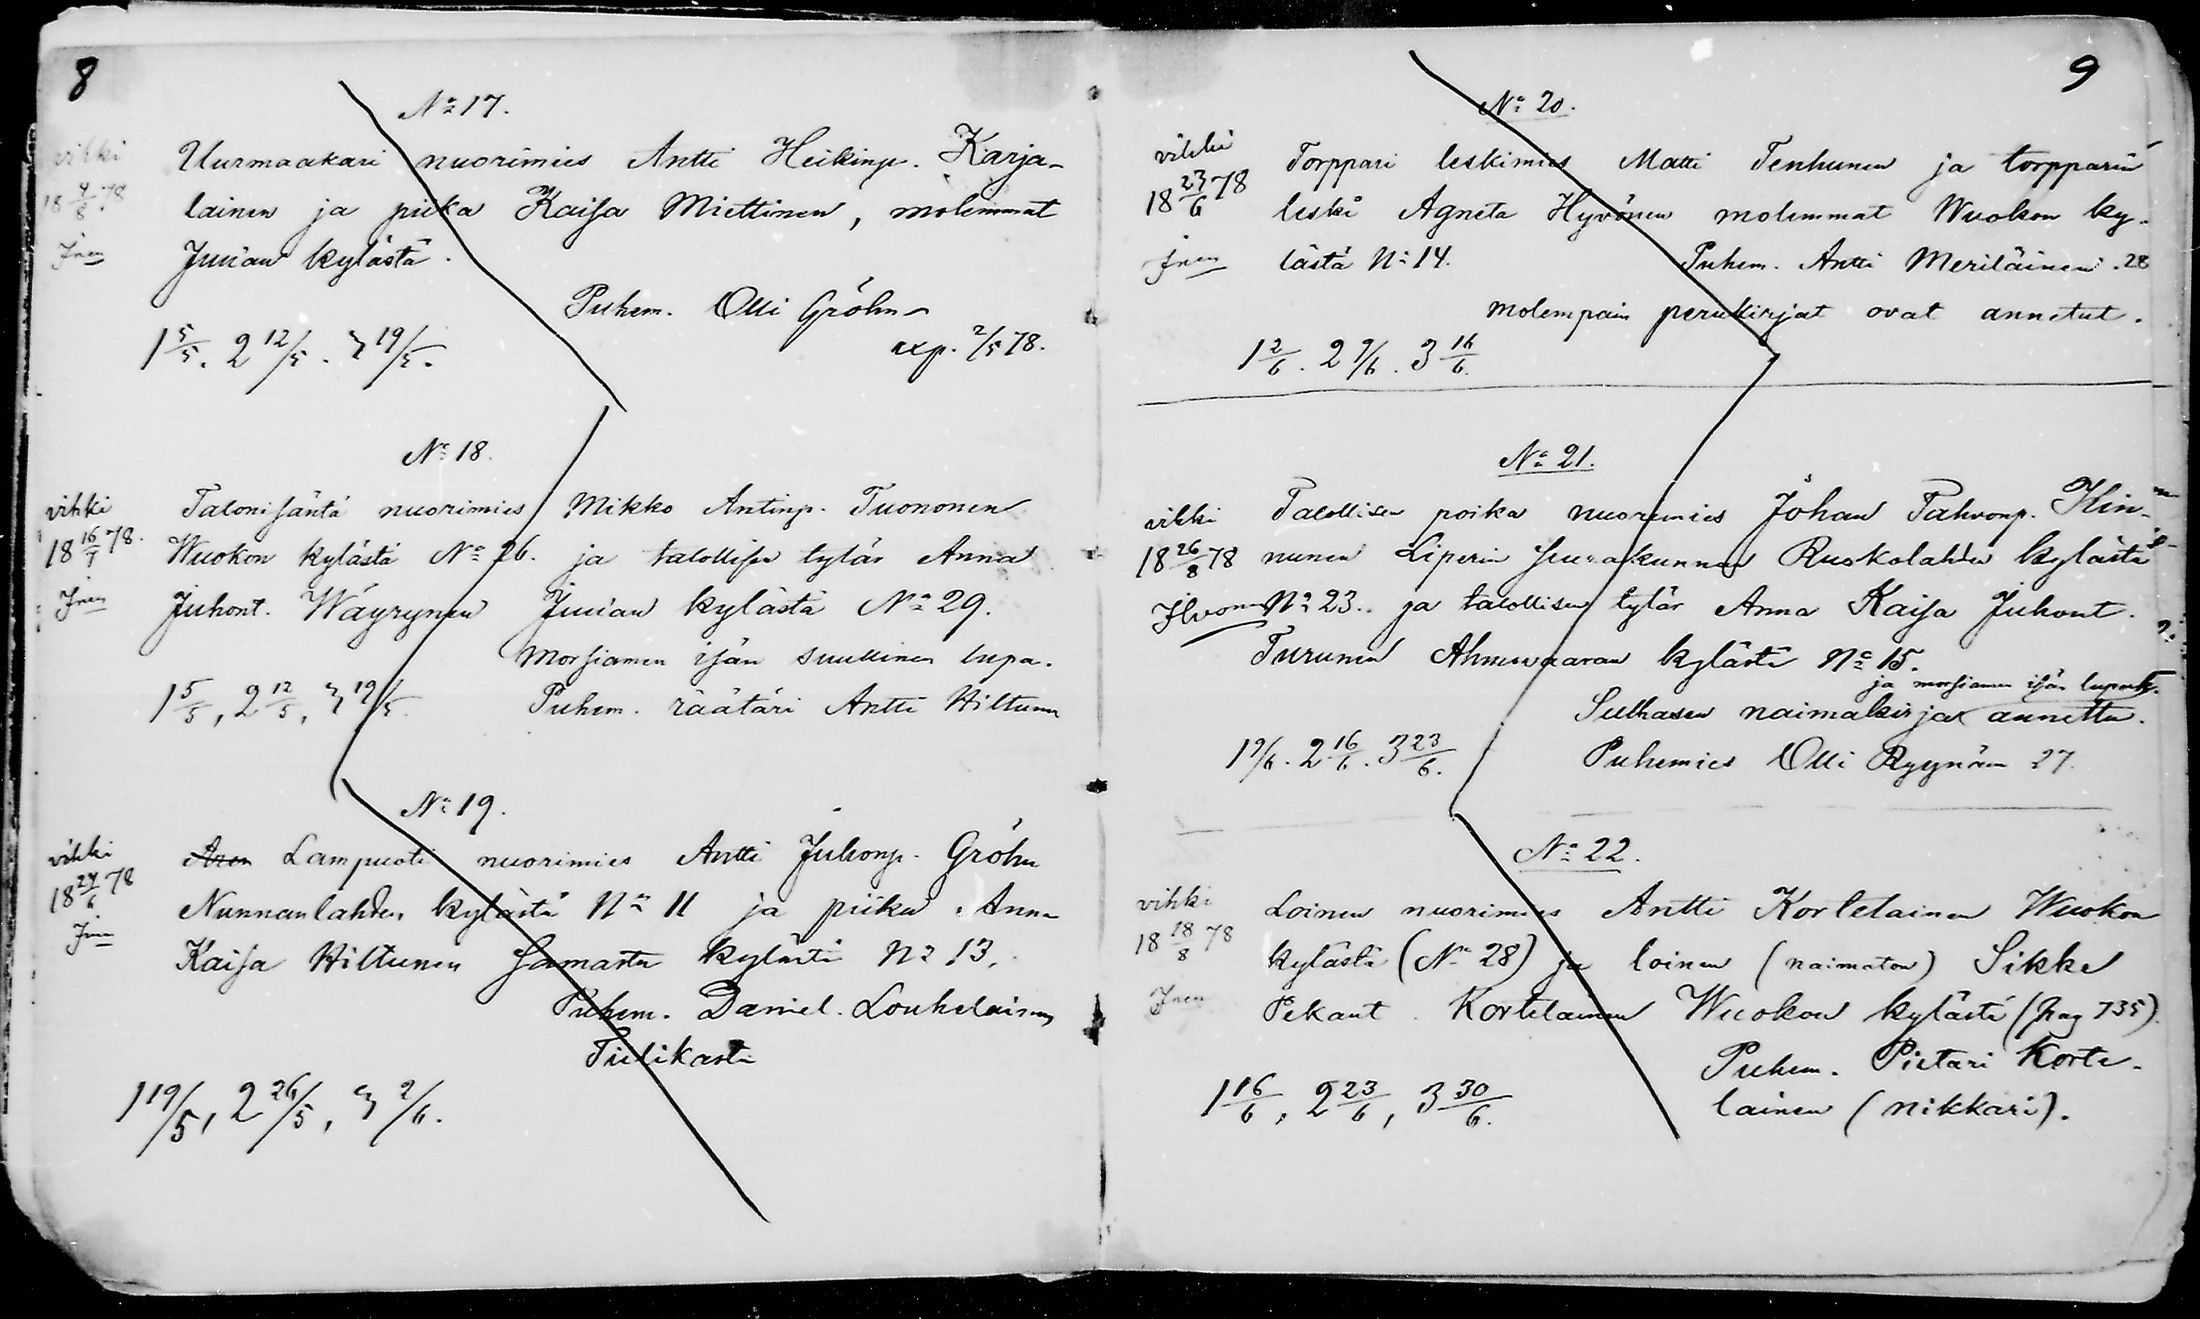 8
No 17.
vihki
18 4/8 78
Jnen
Uurmaakari nuorimies Antti Heikinp. Karja-
lainen ja piika Kaisa Miettinen, molemmat
Juuan kylästä.
Puhem. Olli Gröhn
exp. 2/5 78.
1 5/5. 2 12/5. 3 19/5.
No 18.
vihki
18 16/7 78.
Jnen
Talonisäntä nuorimies Mikko Antinp. Tuononen
Wuokon kylästä No 26. ja talollisen tytär Anna
Juhont. Wäyrynen Juuan kylästä No 29.
Morsiamen isän suullinen lupa.
1 5/5, 2 12/5, 3 19/5.
Puhem. räätäri Antti Hiltunen
No 19.
vihki
18 24/6 78
Lampuoti nuorimies Antti Juhonp. Gröhn
Nunnanlahden kylästä No 11 ja piika Anna
Kaisa Hiltunen samasta kylästä No 13.
Puhem. Daniel Louhelainen
1 19/5, 2 26/5, 3 2/6.
9
No 20.
vihki
18 23/6 78
Jnen
Torppari leskimies Matti Tenhunen ja torpparin
leski Agneta Hyvönen molemmat Wuokon ky-
lästä No 14. Puhem. Antti Meriläinen. 28
molempain perukirjat ovat annetut.
1 2/6. 2 9/6. 3 16/6.
No 21.
vihki
18 26/8 78
Talollisen poika nuorimies Johan Pahvonp. Kin-
nunen Liperin seurakunnan Ruokolahden kylästä
No 23. ja talollisen tytär Anna Kaisa Juhont.
Turunen Ahmovaaran kylästä No 15.
ja morsiamen isän
Sulhasen naimakirja annettu.
1 9/6. 2 16/6. 3 23/6.
Puhemies Olli Ryynän 27.
No 22.
vihki
18 18/8 78
Jnen
Loinen nuorimies Antti Kortelainen Wuokon
kylästä (No 28) ja loinen (naimaton) Sikke
Pekant. Kortelainen Wuokon kylästä (pag 735).
Puhem. Pietari Korte-
lainen (nikkari).
1 16/6, 2 23/6, 3 30/6.